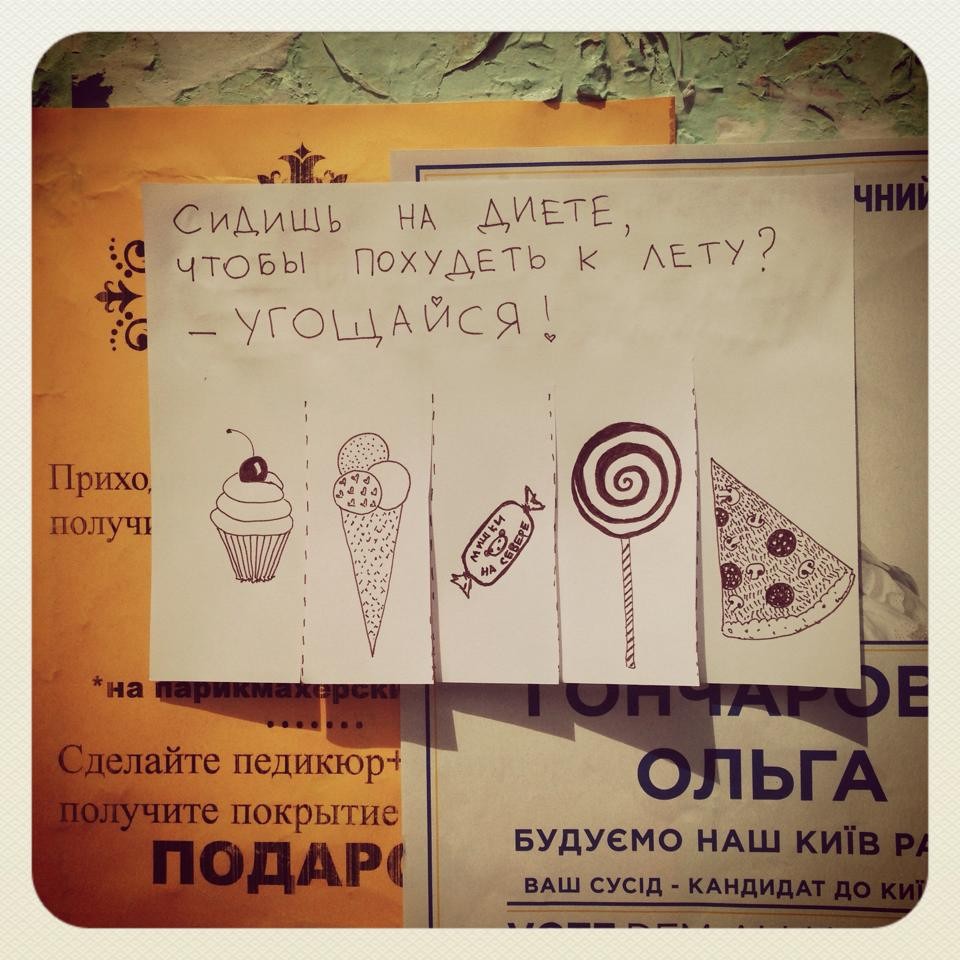 СИДИШЬ НА ДИЕТЕ,
ЧТОБЫ ПОХУДЕТЬ К ЛЕТУ?
– УГОЩАЙСЯ!
МИШКИ
НА СЕВЕРЕ
*на парикмахерски
Сделайте педикюр+
получите покрытие
ГОНЧАРОВ
ОЛЬГА
БУДУЄМО НАШ КИЇВ
ВАШ СУСІД - КАНДИДАТ ДО